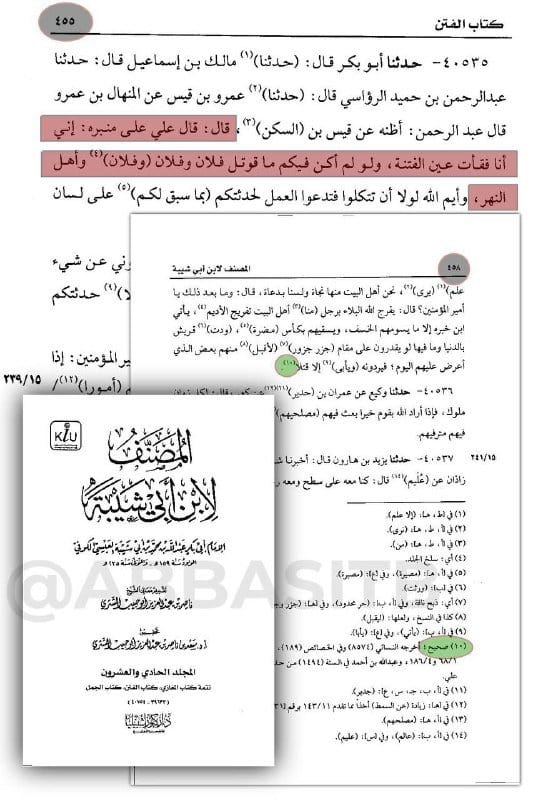 ٤٥٥
كتاب الفتن
٤٠٥٣٥- حدثنا أبو بكر قال: (حدثنا)(١) مالك بن إسماعيل قال: حدثنا
عبدالرحمن بن حميد الرؤاسي قال: (حدثنا)(٢) عمرو بن قيس عن المنهال بن عمرو
قال عبد الرحمن: أظنه عن قيس بن (السكن)(٣)، قال: قال علي على منبره: إني
أنا فقأت عين الفتنة، ولو لم أكن فيكم ما قوتل فلان وفلان (وفلان)(٤) وأهل
النهر، وأيم الله لولا أن تتكلوا فتدعوا العمل لحدثتكم (بما سبق لكم)(٥) على لسان
وني عن شيء
لا)(٨) حدثتكم
ير المؤمنين: إذا
(أمورا)(١٢)/
٢٣٩/١٥
٤٥٨
المصنف لابن أبي شيبة
علم)(١) (يرى)(٢)، نحن أهل البيت منها نجاة ولسنا بدعاة، قال: وما بعد ذلك يا
أمير المؤمنين؟ قال: يفرج الله البلاء برجل (منا)(٣) أهل البيت تفريج الأديم(٤)، يأتي
ابن خبره إلا ما يسومهم الخسف، ويسقيهم بكأس (مصبرة)(٥)، (ودت)(٦) قريش
بالدنيا وما فيها لو يقدرون على مقام (جزر جزور)(٧) (لأقبل)(٨) منهم بعض الذي
أعرض عليهم اليوم؛ فيردونه (ويأبى)(٩) إلا قتلا(١٠).
٤٠٥٣٦- حدثنا وكيع عن عمران بن (حدير)(١١)
ملوك، فإذا أراد الله بقوم خيرا بعث فيهم (مصلحيهم)
فيهم مترفيهم.
٢٤١/١٥
٤٠٥٣٧- حدثنا يزيد بن هارون قال: أخبرنا
زاذان عن (عُلَيم)(١٤) قال: كنا معه على سطح ومعه
(١) في [ط، هـ]: (إلا علم).
(٢) في [أ، ط، هـ]: (نرى).
(٣) في [أ، ط، هـ]: (من).
(٤) أي: سلخ الجلد.
(٥) في [أ، هـ]: (مصيرة)، وفي [ع]: (مصبرة).
(٦) في [ب]: (ورثت).
(٧) أي: ذبح ناقة، وفي [أ، ب]: (حر محدود)، وفي [هـ]: (جزر وجز
(٨) كذا في النسخ، ولعلها: (ليقبل).
(٩) في [أ، ب]: (يأتي)، وفي [ع]: (يأبا).
(١٠) صحيح؛ أخرجه النسائي (٨٥٧٤) وفي الخصائص (١٨٩)،
٦٨/١ و١٨٦/٤، وعبدالله بن أحمد في السنة (١٤٩٤)
علي.
(١١) في [أ، ب، جـ، س، ع]: (جدير).
(١٢) في [هـ]: زيادة (عن السمط) أخذًا مما تقدم ١٤٣/١١ برقم
(١٣) في [أ، هـ]: (مصلحهم).
(١٤) في [أ، ب]: (عالم)، وفي [س]: (عليم).
KIU
المصنف
لابن أبي شيبة
الإمام أبي بكر عبد الله بن محمد بن أبي شيبة العبسي الكوفي
ناصر بن عبد العزيز أبو حبيب الشثري
المجلد الحادي والعشرون
تتمة كتاب المغازي، كتاب الفتن، كتاب الجمل
دار كنوز إشبيليا